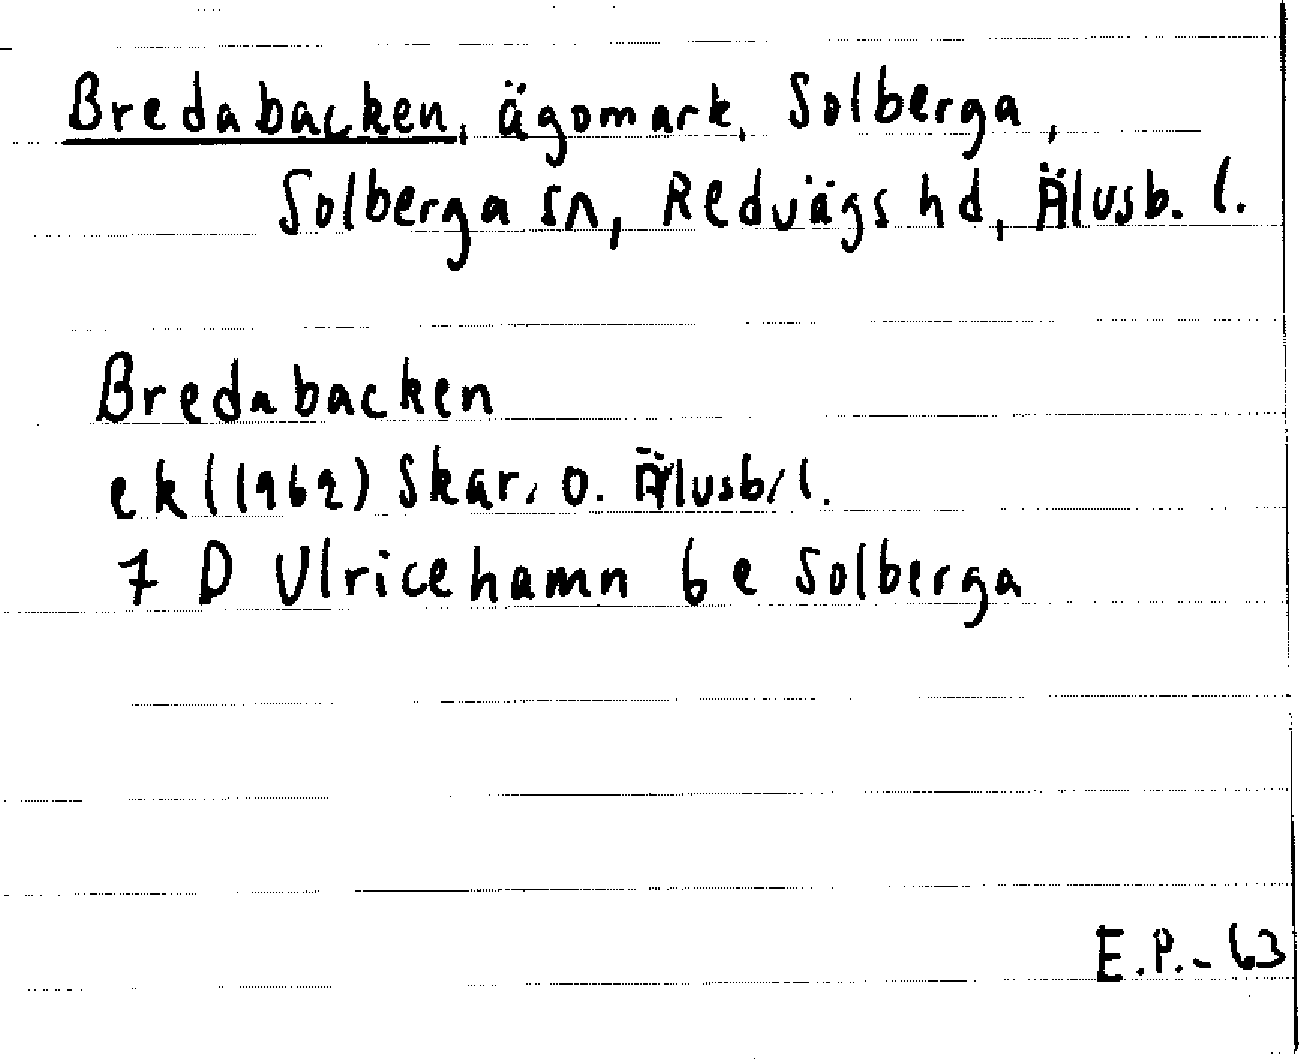 Bredabacken, ägomark, Solberga,
Solberga sn, Redvägs hd, Älvsb. l.
Bredabacken
ek (1962) Skar. o. Älvsb. l.
7 D Ulricehamn 6 e Solberga
E.P.-63